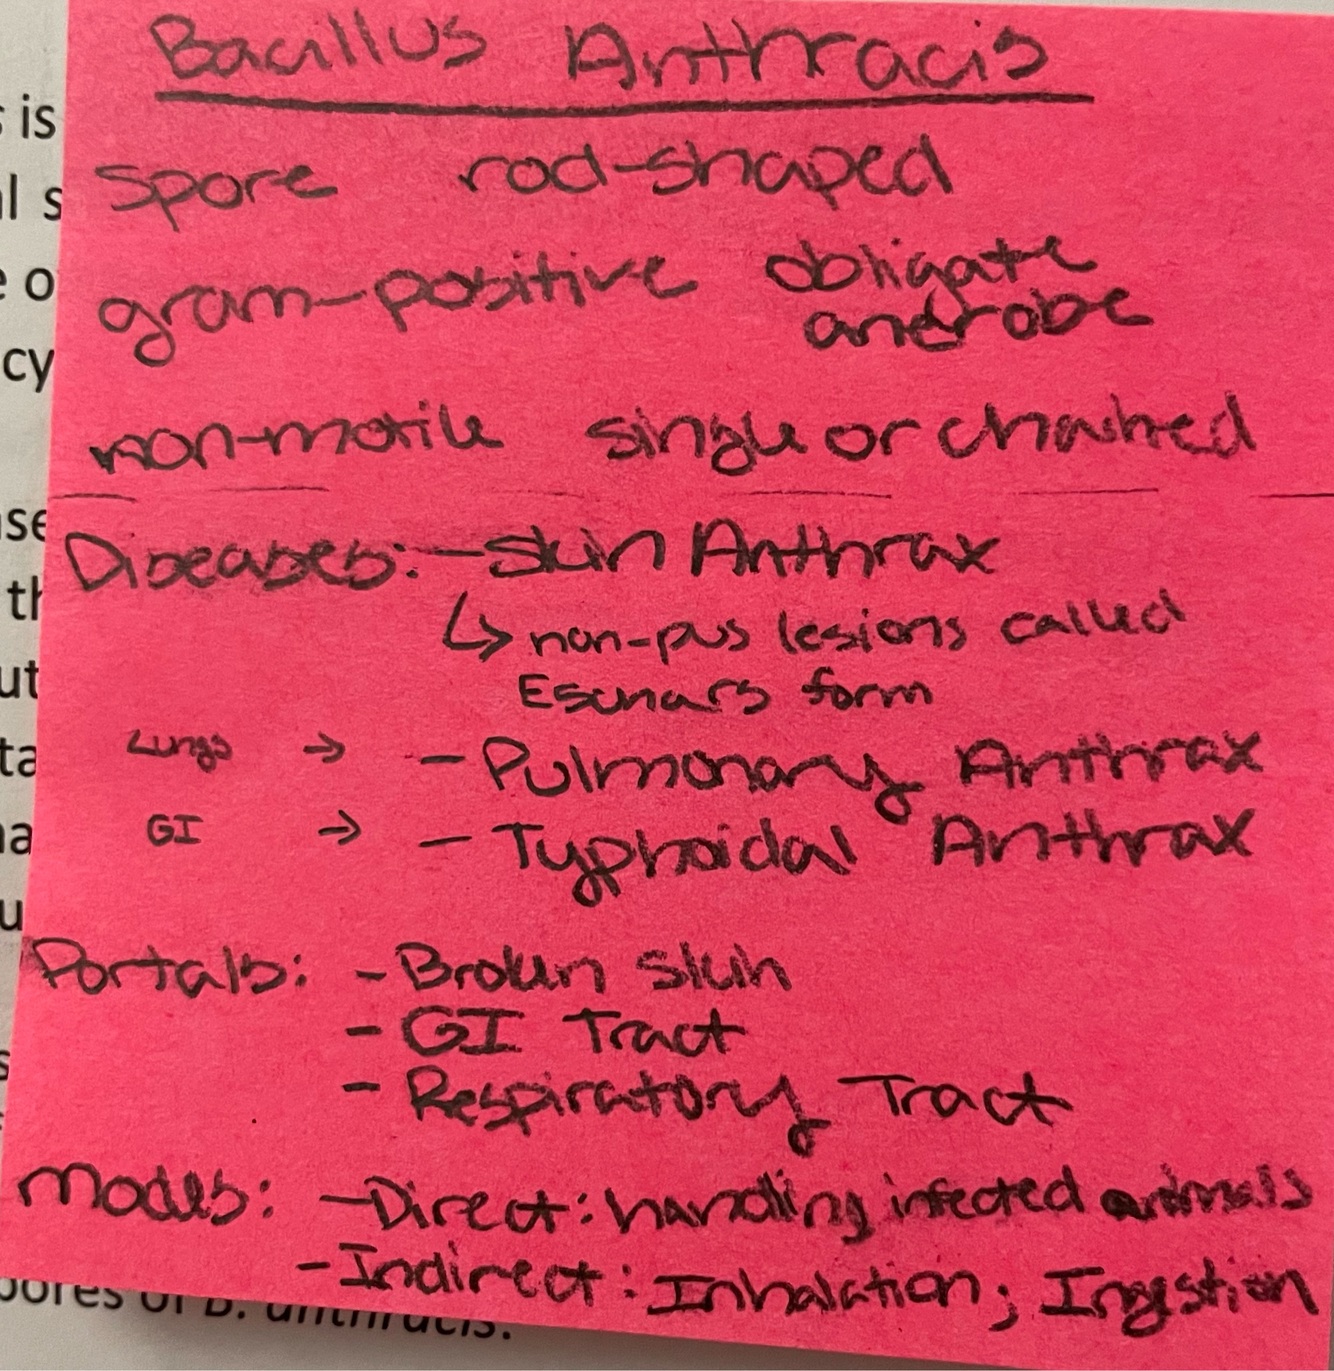 Bacillus Anthracis
spore rod-shaped
gram-positive obligate
anerobe
non-motile single or chained
Diseases: - Skin Anthrax
↳ non-pus lesions called
Eschars form
Lungs → - Pulmonary Anthrax
GI → - Typhoidal Anthrax
Portals: - Broken skin
- GI Tract
- Respiratory Tract
Modes: - Direct: handling infected animals
- Indirect: Inhalation; Ingestion
is
l s
e o
cy
se
th
ut
ta
na
u
pores of B. anthracis.